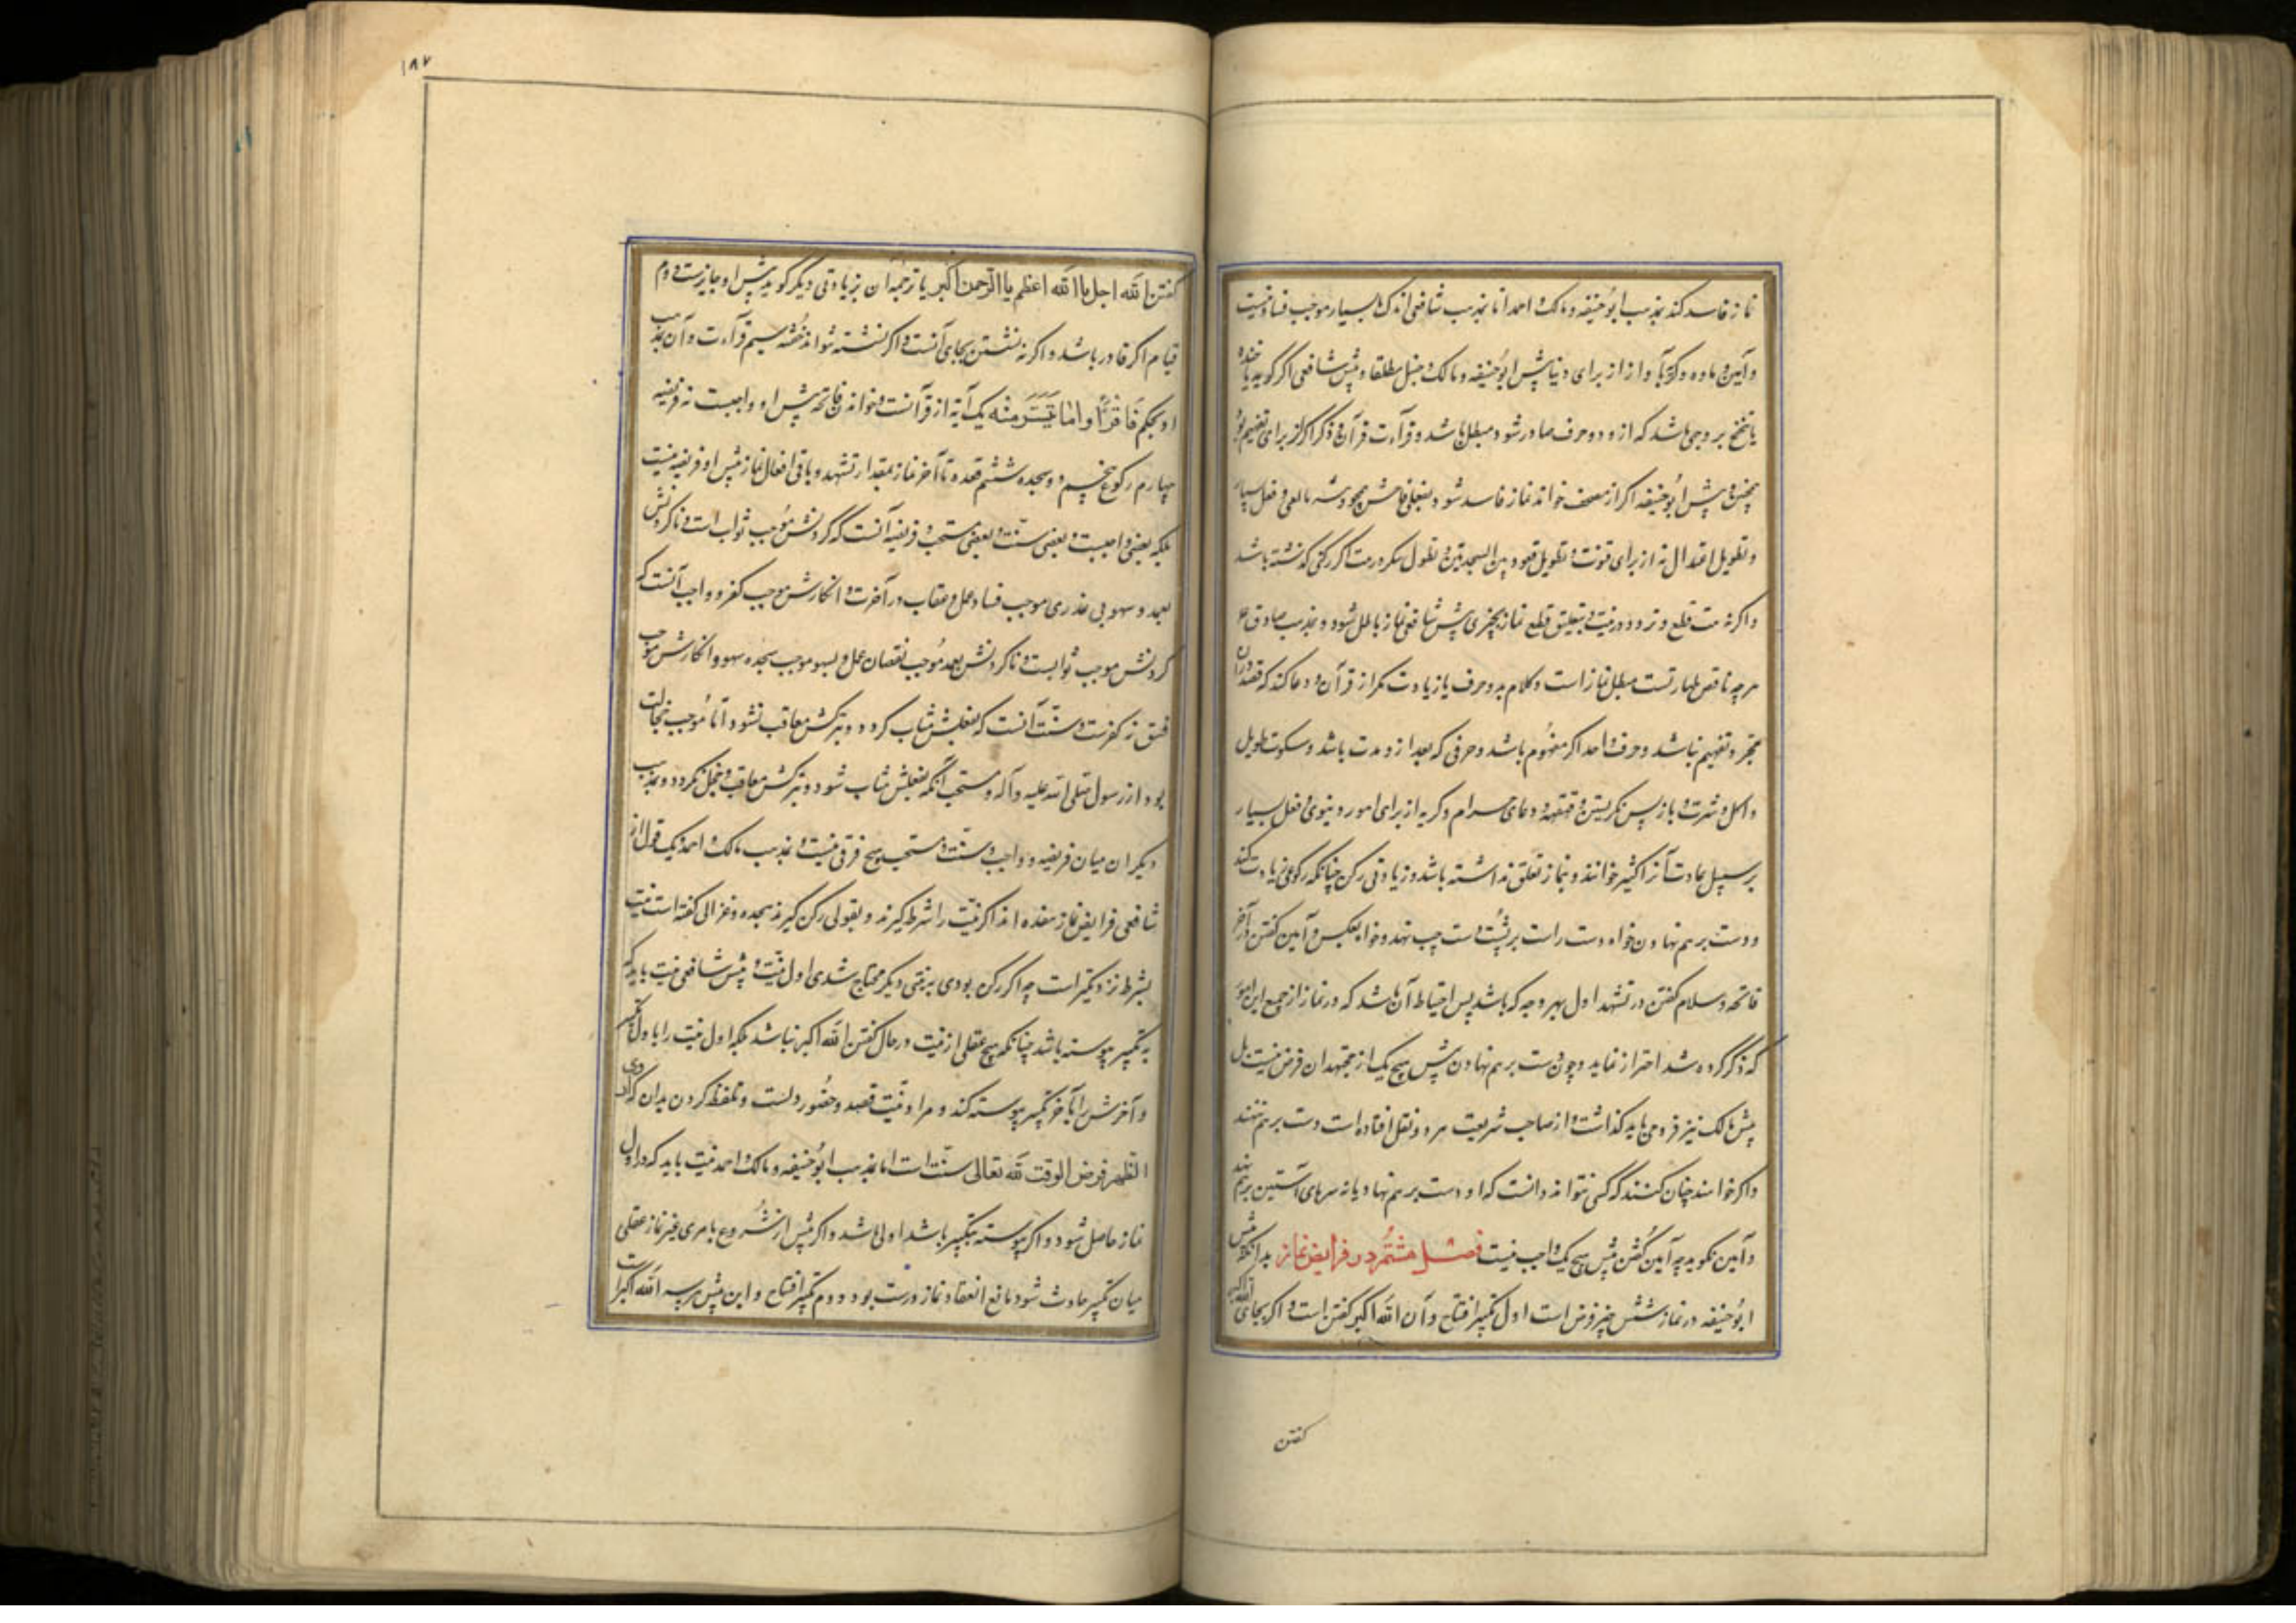 نماز فاسد کند بمذهب ابوحنیفه و مالک و احمد اما بمذهب شافعی اندک و بسیار موجب فساد نیست
و آنین و ماوه و کریهٔ بآواز از برای دنیا پیش ابوحنیفه و مالک و حنبل مطلقا و پیش شافعی اگر گوید یا خنده
یا تنحنح بر وجهی باشد که از و دو حرف صادر شود مبطل باشد و قرآءت قرآن و ذکر اگر از برای تفهیم بود
همچنین و پیش ابوحنیفه اگر از مصحف خواند نماز فاسد شود و بفعلی فاحش و فعل بسیار
و تطویل اعتدال نه از برای قنوت و تطویل قعود بین السجدتین و تطول اگر رکنی گذشته باشد
و اگر نه نیت قلع و تردد در نیت و تعلیق قطع نماز بچیزی پیش شافعی نماز باطل شود و بمذهب صادق ع
هرچه ناقص طهارتست مبطل نماز است و کلام بدو حرف یا زیادت مگر از قرآن و دعا کند که قصد در آن
مجرد تفهیم نباشد و حرف واحد اگر مفهوم باشد و حرفی که بعد از و مدت باشد و سکوت طویل
و اکل و شرب و باز پس نگریستن و قهقهه و دعای حرام و گریه از برای امور دنیوی و فعل بسیار
بر سبیل عادت آنرا کثیر خوانند و بنماز تعلق نداشته باشد و زیادتی رکن چنانکه رکوعی زیادت کند
و دست بر هم نهادن خواه دست راست بر پشت دست چپ نهد و خواه بعکس و آمین گفتن در آخر
فاتحه و سلام گفتن در تشهد اول بهر وجه که باشد پس احتیاط آن باشد که در نماز از جمیع این امور
که ذکر کرده شد احتراز نماید و چون دست بر هم نهادن پیش هیچ یک از مجتهدان فرض نیست بل
پیش مالک نیز فرو می باید گذاشت و از صاحب شریعت هر دو نقل افتاده است دست بر هم ننهند
و اگر خواهند چنان کنند که کسی نتواند دانست که او دست بر هم نهاد یا نه سرهای آستین بر هم نهد
و آمین نگوید چه آمین گفتن پیش هیچ یک واجب نیست فصل هشتم در فرایض نماز بدانک پیش
ابوحنیفه در نماز شش چیز فرض است اول تکبیر افتتاح و آن الله اکبر گفتن است و اگر بجای الله اکبر
گفتن
۱۸۷
گفتن الله اجل یا الله اعظم یا الرحمن اکبر یا ترجمهٔ آن بزیادتی دیگر گوید پیش او جایزست دوم
قیام اگر قادر باشد و اگر نه نشستن بجای آنست و اگر نشسته نتواند خفته سیم قرآءت و آن بمذهب
او بحکم فاقرؤا ما تیسر منه یک آیه از قرآنست و خواندن فاتحه پیش او واجبست نه فریضه
چهارم رکوع پنجم سجده ششم قعده تا آخر نماز بمقدار تشهد و باقی افعال نماز پیش او فریضه نیست
بلکه بعضی واجبست و بعضی سنت و بعضی مستحب و فریضه آنست که کردنش موجب ثواب است و ناکردنش
بعمد و سهو بی عذری موجب فساد عمل و عقاب در آخرت و انکارش موجب کفر و واجب آنست که
کردنش موجب ثوابست و ناکردنش بعمد موجب نقصان عمل و بسهو موجب سجده سهو و انکارش موجب
فسق نه کفرست و سنت آنست که بفعلش مثاب گردد و بترکش معاقب نشود اما موجب خجالت
بود از رسول صلی الله علیه و آله و مستحب آنکه بفعلش مثاب شود و بترکش معاقب و خجل نگردد و بمذهب
دیگران میان فریضه و واجب و سنت و مستحب هیچ فرقی نیست و بمذهب مالک و احمد و یک قول از
شافعی فرایض نماز هفده اند اگر نیت را شرط گیرند و بقولی رکن گیرند هجده و غزالی گفته است نیت
بشرط نزدیکتر است چه اگر رکن بودی به نیتی دیگر محتاج شدی اول نیت و پیش شافعی نیت باید که
به تکبیر پیوسته باشد چنانکه هیچ عقلی از نیت در حال گفتن الله اکبر نباشد بلکه اول نیت را باول تکبیر
و آخرش را بآخر تکبیر پیوسته کند و مراد نیت قصد و حضور دلست و تلفظ کردن بدان که اؤدی
الظهر فرض الوقت لله تعالی سنت است اما بمذهب ابوحنیفه و مالک و احمد نیت باید که در اول
نماز حاصل شود و اگر پیوسته بتکبیر باشد اولی باشد و اگر پیش از شروع بامری غیر نماز عقلی
میان تکبیر حادث شود مانع انعقاد نماز درست بود دوم تکبیر افتتاح و این پیش هر سه الله اکبر است